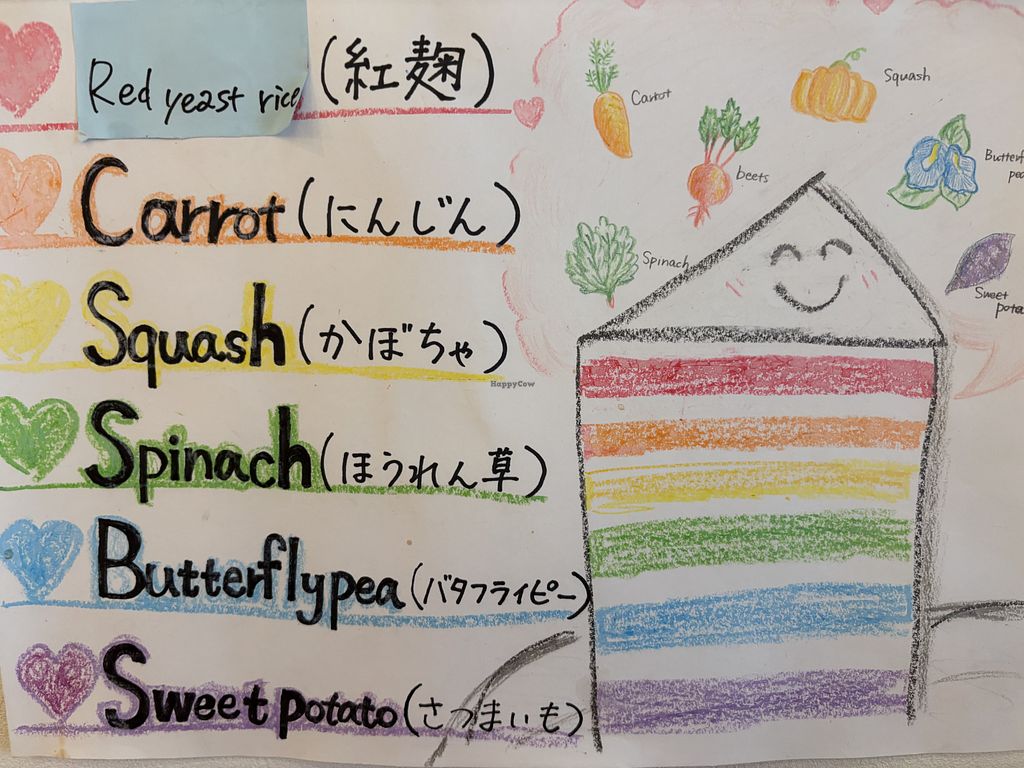 Red yeast rice (紅麹)
Carrot (にんじん)
Squash (かぼちゃ)
Spinach (ほうれん草)
Butterflypea (バタフライピー)
Sweet potato (さつまいも)
Carrot
Squash
beets
Butterf
pea
Spinach
Sweet
pota
HappyCow